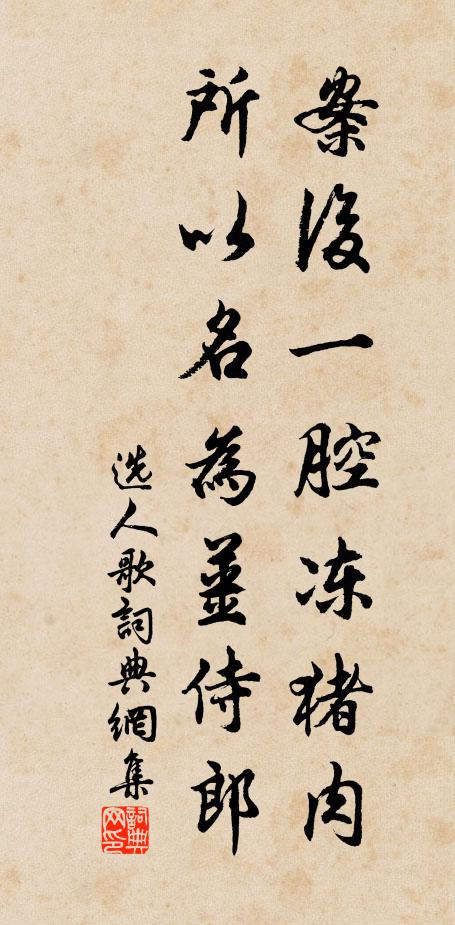 案後一腔冻猪肉
所以名為姜侍郎
选人歌詞典網集
詞典網印